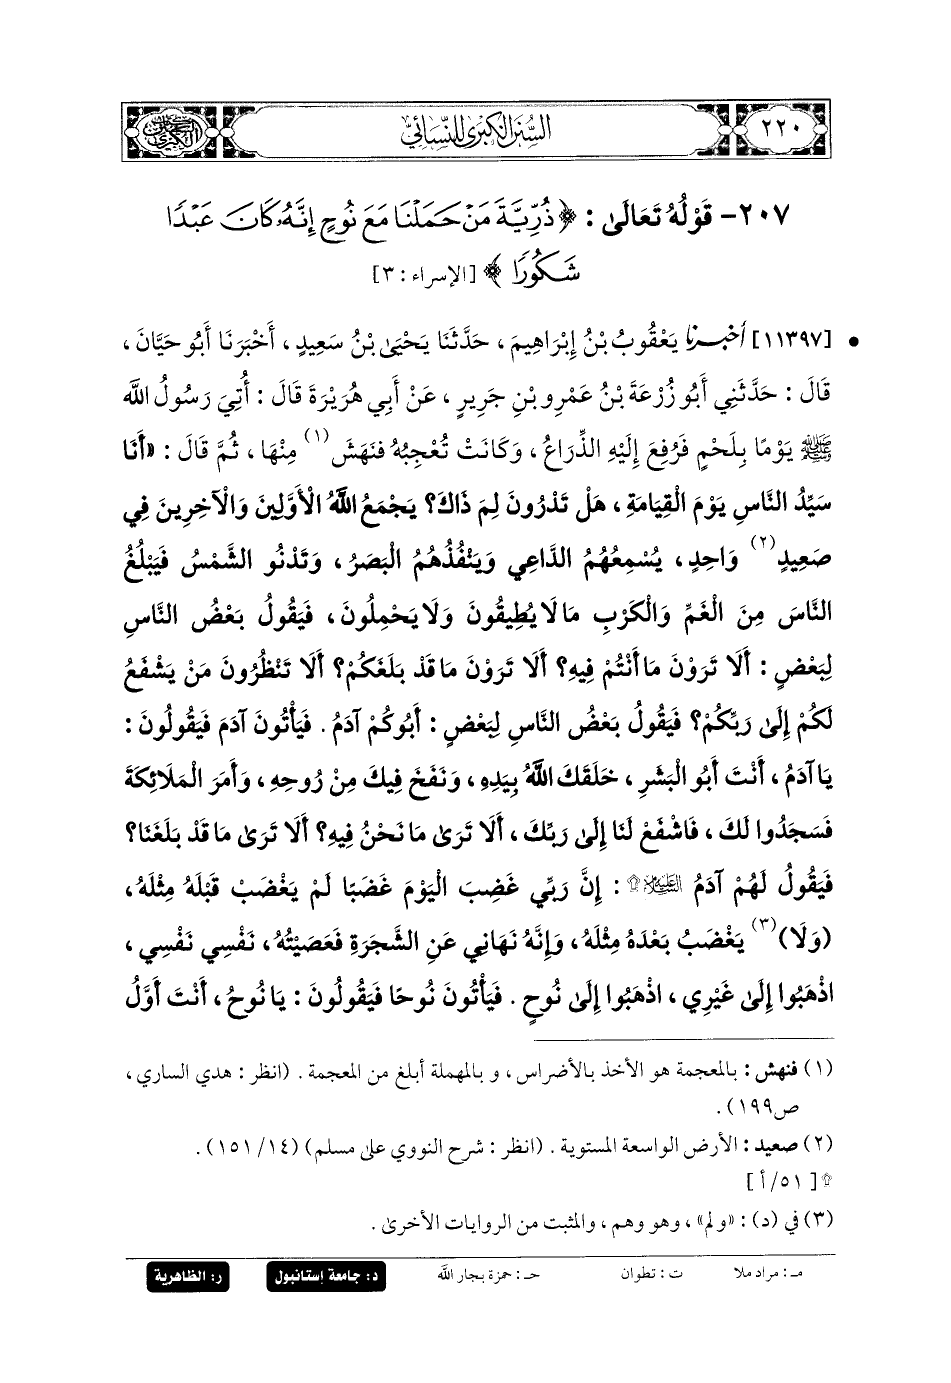 ٢٢٠
السنن الكبرى للنسائي
٢٠٧- قَوْلُهُ تَعَالَى : ﴿ ذُرِّيَّةَ مَنْ حَمَلْنَا مَعَ نُوحٍ إِنَّهُ كَانَ عَبْدًا
شَكُورًا ﴾ [الإسراء : ٣]
• [١١٣٩٧] أخبرنا يَعْقُوبُ بْنُ إِبْرَاهِيمَ ، حَدَّثَنَا يَحْيَى بْنُ سَعِيدٍ ، أَخْبَرَنَا أَبُو حَيَّانَ ،
قَالَ : حَدَّثَنِي أَبُو زُرْعَةَ بْنُ عَمْرِو بْنِ جَرِيرٍ ، عَنْ أَبِي هُرَيْرَةَ قَالَ : أُتِيَ رَسُولُ اللَّه
ﷺ يَوْمًا بِلَحْمٍ فَرُفِعَ إِلَيْهِ الذِّرَاعُ ، وَكَانَتْ تُعْجِبُهُ فَنَهَشَ (١) مِنْهَا ، ثُمَّ قَالَ : «أَنَا
سَيِّدُ النَّاسِ يَوْمَ الْقِيَامَةِ ، هَلْ تَدْرُونَ لِمَ ذَاكَ؟ يَجْمَعُ اللَّهُ الْأَوَّلِينَ وَالْآخِرِينَ فِي
صَعِيدٍ (٢) وَاحِدٍ ، يُسْمِعُهُمُ الدَّاعِي وَيَنْفُذُهُمُ الْبَصَرُ ، وَتَدْنُو الشَّمْسُ فَيَبْلُغُ
النَّاسَ مِنَ الْغَمِّ وَالْكَرْبِ مَا لَا يُطِيقُونَ وَلَا يَحْمِلُونَ ، فَيَقُولُ بَعْضُ النَّاسِ
لِبَعْضٍ : أَلَا تَرَوْنَ مَا أَنْتُمْ فِيهِ؟ أَلَا تَرَوْنَ مَا قَدْ بَلَغَكُمْ؟ أَلَا تَنْظُرُونَ مَنْ يَشْفَعُ
لَكُمْ إِلَى رَبِّكُمْ؟ فَيَقُولُ بَعْضُ النَّاسِ لِبَعْضٍ : أَبُوكُمْ آدَمُ . فَيَأْتُونَ آدَمَ فَيَقُولُونَ :
يَا آدَمُ ، أَنْتَ أَبُو الْبَشَرِ ، خَلَقَكَ اللَّهُ بِيَدِهِ ، وَنَفَخَ فِيكَ مِنْ رُوحِهِ ، وَأَمَرَ الْمَلَائِكَةَ
فَسَجَدُوا لَكَ ، فَاشْفَعْ لَنَا إِلَى رَبِّكَ ، أَلَا تَرَى مَا نَحْنُ فِيهِ؟ أَلَا تَرَى مَا قَدْ بَلَغَنَا؟
فَيَقُولُ لَهُمْ آدَمُ ۩ : إِنَّ رَبِّي غَضِبَ الْيَوْمَ غَضَبًا لَمْ يَغْضَبْ قَبْلَهُ مِثْلَهُ ،
(وَلَا) (٣) يَغْضَبُ بَعْدَهُ مِثْلَهُ ، وَإِنَّهُ نَهَانِي عَنِ الشَّجَرَةِ فَعَصَيْتُهُ ، نَفْسِي نَفْسِي ،
اذْهَبُوا إِلَى غَيْرِي ، اذْهَبُوا إِلَى نُوحٍ . فَيَأْتُونَ نُوحًا فَيَقُولُونَ : يَا نُوحُ ، أَنْتَ أَوَّلُ
(١) فنهش : بالمعجمة هو الأخذ بالأضراس ، و بالمهملة أبلغ من المعجمة . (انظر : هدي الساري ،
ص١٩٩) .
(٢) صعيد : الأرض الواسعة المستوية . (انظر : شرح النووي على مسلم) (١٤/ ١٥١) .
۩ [ ٥١/أ ]
(٣) في (د) : «ولم» ، وهو وهم ، والمثبت من الروايات الأخرى .
مـ : مراد ملا ت : تطوان حـ : حمزة بجار اللَّه د : جامعة إستانبول ر : الظاهرية